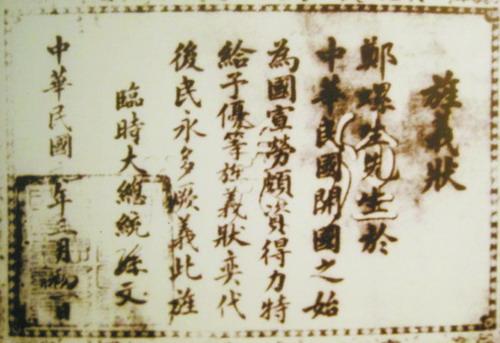 旌義狀
鄭螺生先生於
中華民國開國之始
為國宣勞頗資得力特
給予優等旌義狀奕代
後民永多厥義此旌
臨時大總統孫文
中華民國年三月初一日